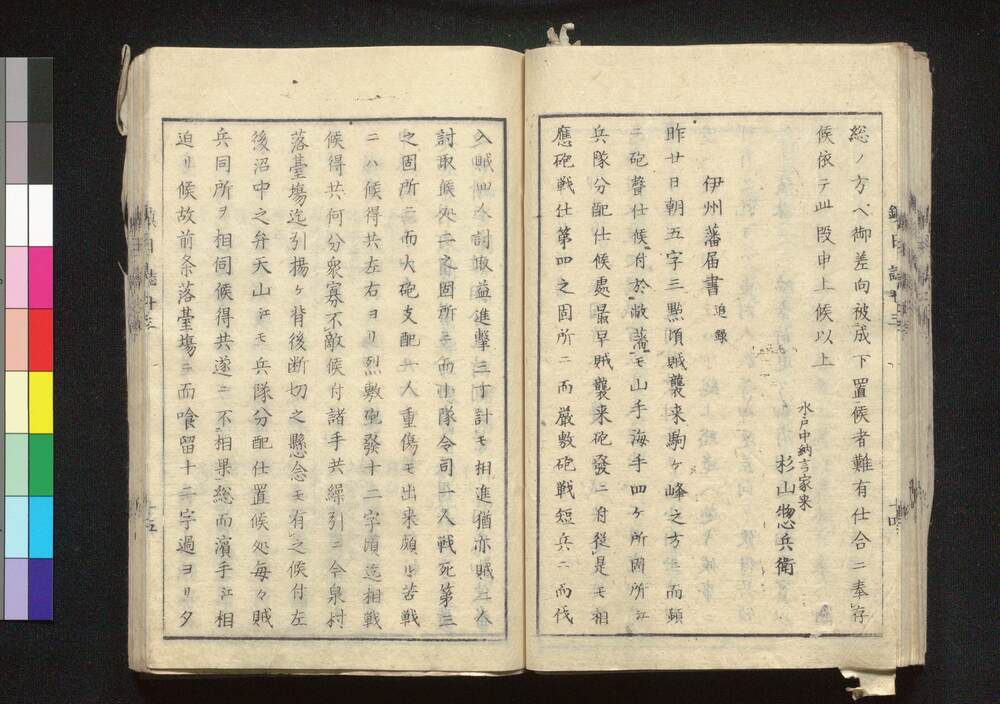 総ノ方ヘ御差向被成下置候者難有仕合ニ奉存
候依テ此段申上候以上
水戸中納言家来
杉山惣兵衛
伊州藩届書 追録
昨廿日朝五字三點頃賊襲来駒ヶ峰之方ニ而頻
ニ砲聲仕候ニ付於敝藩モ山手海手四ヶ所固所江
兵隊分配仕候處最早賊襲来砲發ニ付従是モ相
應砲戦仕第四之固所ニ而厳敷砲戦短兵ニ而伐
入賊四人討取益進撃三丁計モ相進猶亦賊二人
討取候処二之固所ニ而小隊令司一人戦死第三
之固所ニ而大砲支配一人重傷モ出来頗ル苦戦
ニハ候得共左右ヨリ烈敷砲發十二字頃迄相戦
候得共何分衆寡不敵候付諸手共繰引ニ今泉村
落臺場迄引揚ヶ背後断切之懸念モ有之候付左
後沼中之弁天山江モ兵隊分配仕置候処毎々賊
兵同所ヲ相伺候得共遂ニ不相果総而濱手江相
迫リ候故前条落臺場ニ而喰留十二字過ヨリ夕
十四
十五